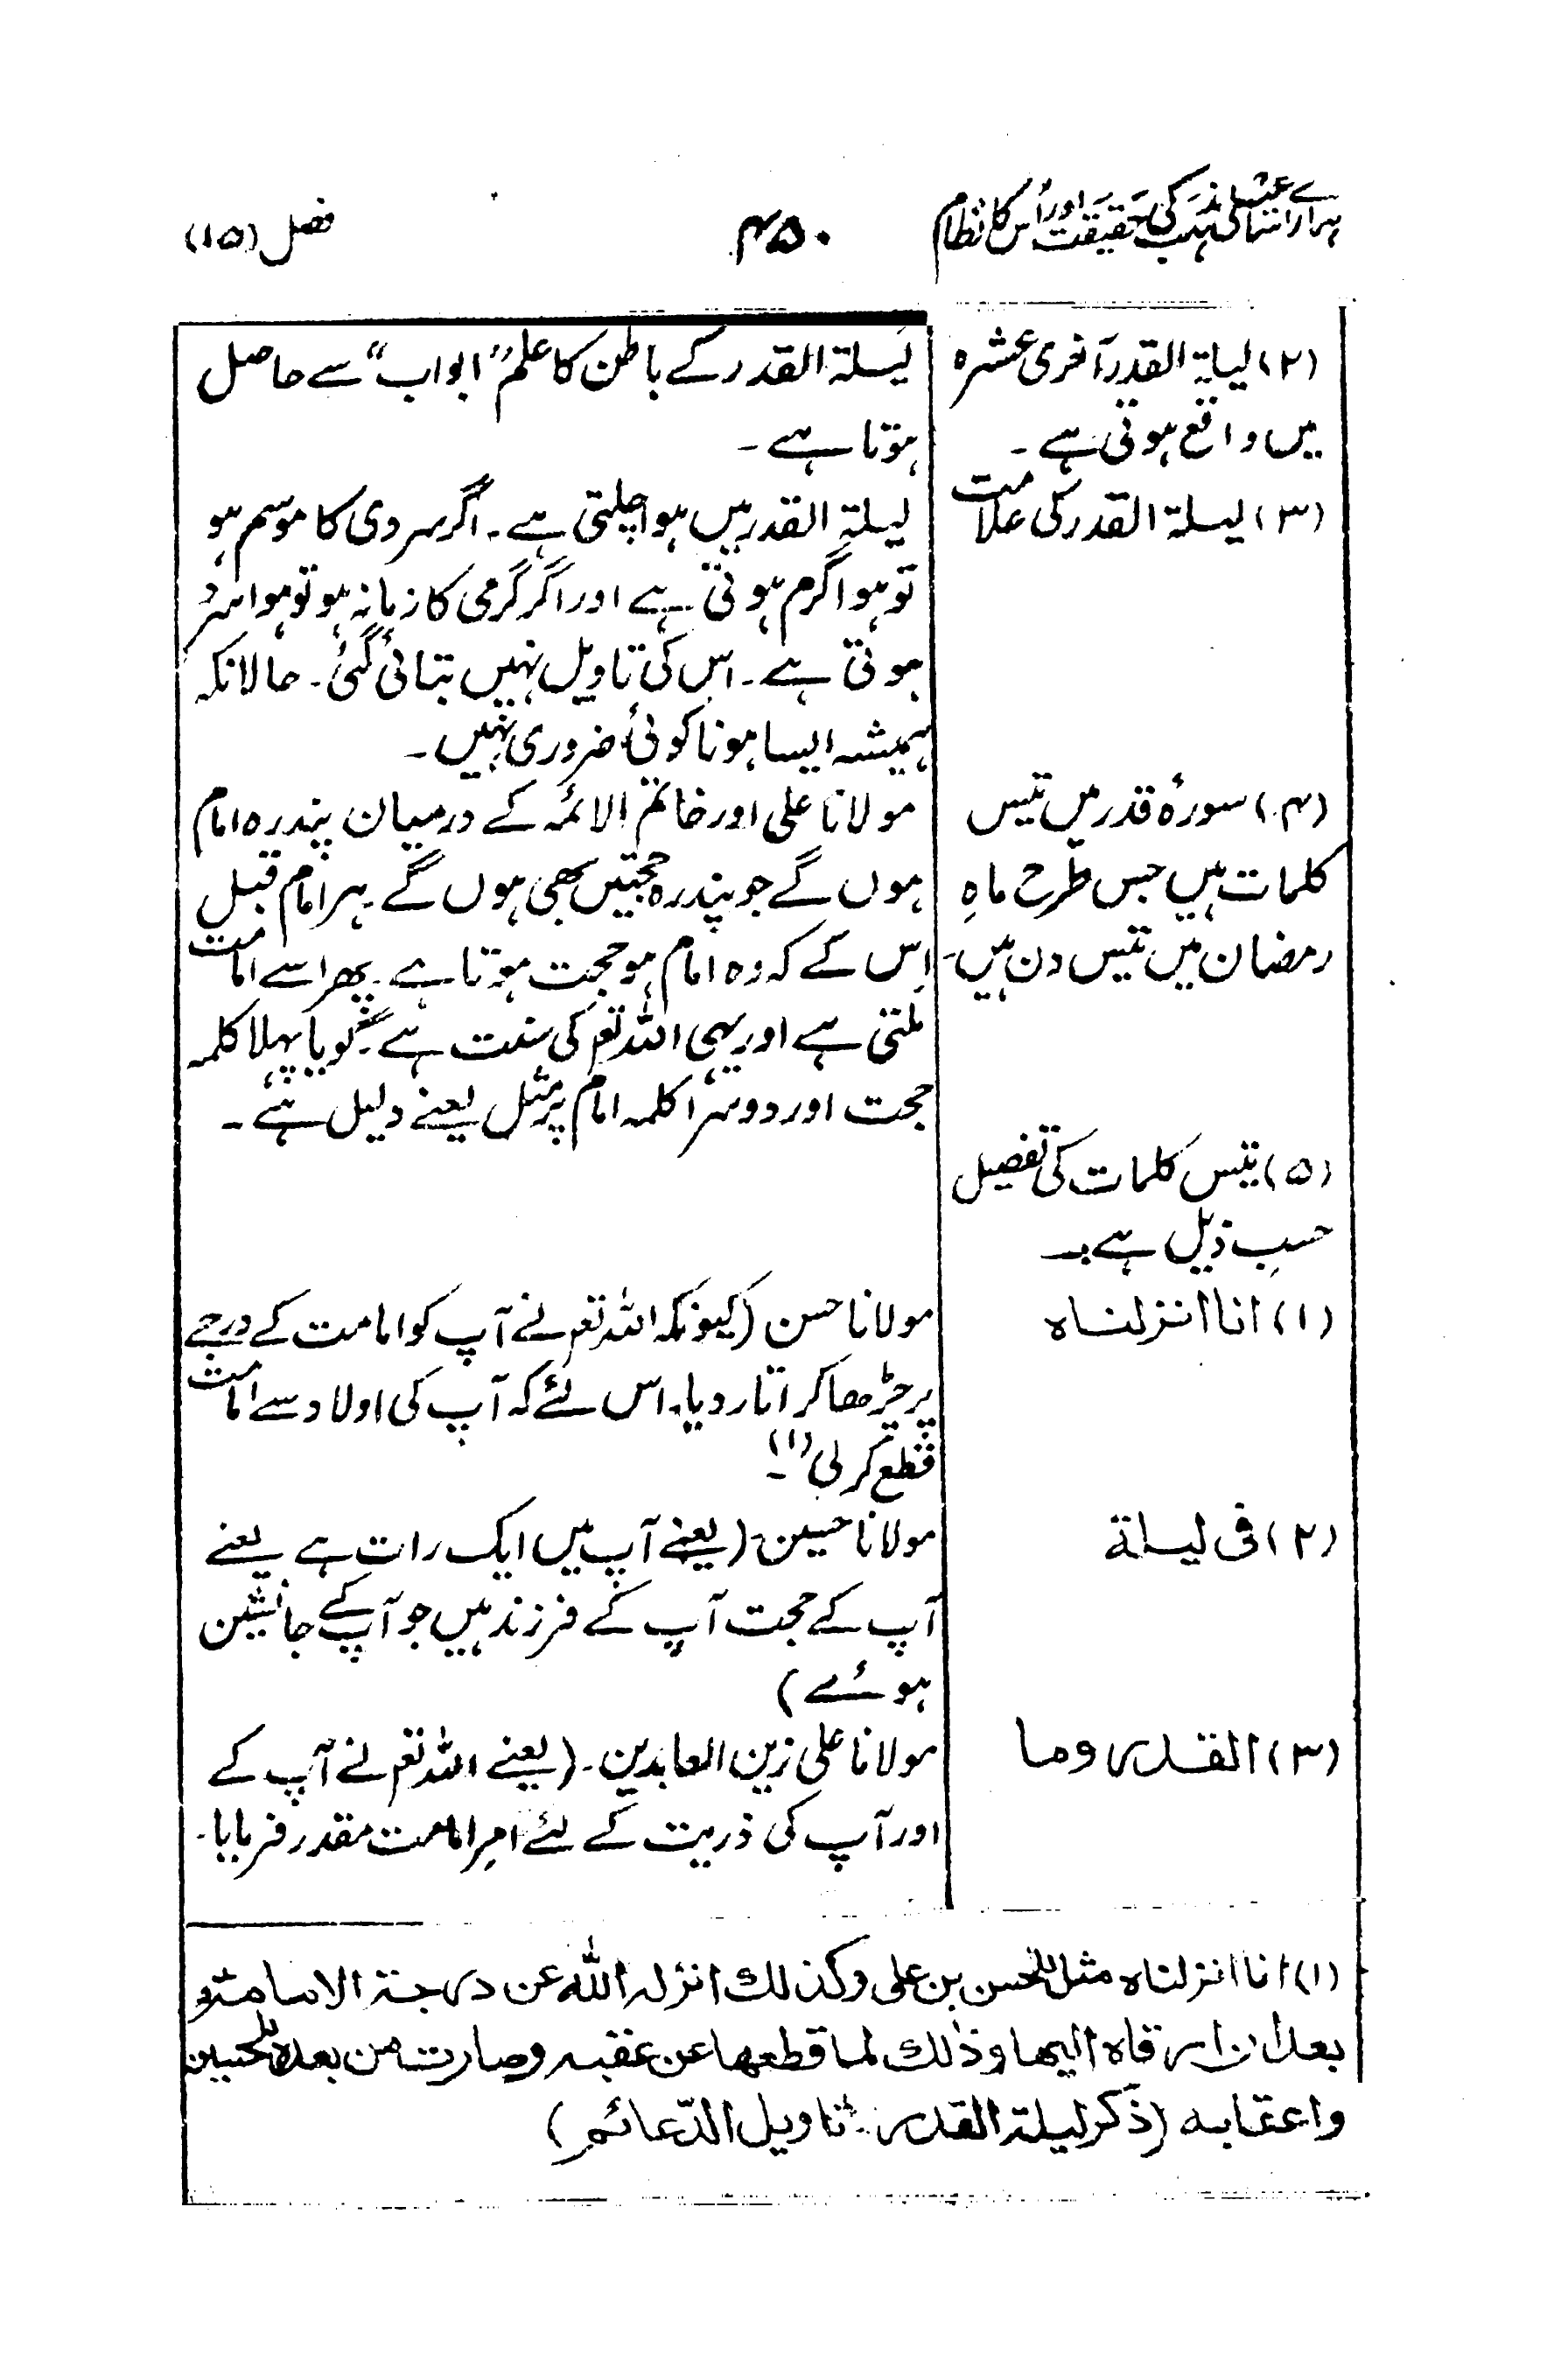 ہمارے اسماعیلی مذہب کی حقیقت اور اُس کا نظام
۴۵۰
فصل (۱۵)
(۲) لیلۃ القدر آخری عشرہ
میں واقع ہوتی ہے ۔
لیلۃ القدر کے باطن کا علم ”ابواب“ سے حاصل
ہوتا ہے ۔
(۳) لیلۃ القدر کی علامت
لیلۃ القدر میں ہوا چلتی ہے ۔ اگر سردی کا موسم ہو
تو ہوا گرم ہوتی ہے اور اگر گرمی کا زمانہ ہو تو ہوا سرد
ہوتی ہے ۔ اس کی تاویل نہیں بتائی گئی ۔ حالانکہ
ہمیشہ ایسا ہونا کوئی ضروری نہیں ۔
(۴) سورۂ قدر میں تیس
کلمات ہیں جس طرح ماہِ
رمضان میں تیس دن ہیں ۔
مولانا علی اور خاتم الائمہ کے درمیان پندرہ امام
ہوں گے جو پندرہ حجتیں بھی ہوں گے ہر امام قبل
اِس کے کہ وہ امام ہو حجت ہوتا ہے ۔ پھر اسے امامت
ملتی ہے اور یہی اللہ تعم کی سنت ہے ۔ گویا پہلا کلمہ
حجت اور دوسرا کلمہ امام پر مثل یعنے دلیل ہے ۔
(۵) تیس کلمات کی تفصیل
حسبِ ذیل ہے :۔
(۱) انا انزلناہ
مولانا حسن (کیونکہ اللہ تعم نے آپ کو امامت کے درجے
پر چڑھا کر اتار دیا ۔ اس لئے کہ آپ کی اولاد سے امامت
قطع کر لی (۱) ۔
(۲) فی لیلة
مولانا حسین ۔ (یعنے آپ میں ایک رات ہے یعنے
آپ کے حجت آپ کے فرزند ہیں جو آپ کے جانشین
ہوئے)
(۳) القدر وما
مولانا علی زین العابدین ۔ (یعنے اللہ تعم نے آپ کے
اور آپ کی ذریت کے لئے امرِ امامت مقدر فرمایا ۔
(۱) انا انزلناہ مثل للحسن بن علی وکذلك انزلہ اللہ عن درجۃ الامامۃ
بعد ان ارقاہ الیھا وذٰلك لما قطعھا عن عقبہ وصارت من بعدہ للحسین
واعقابہ (ذکر لیلۃ القدر ۔ تاویل الدّعائم)